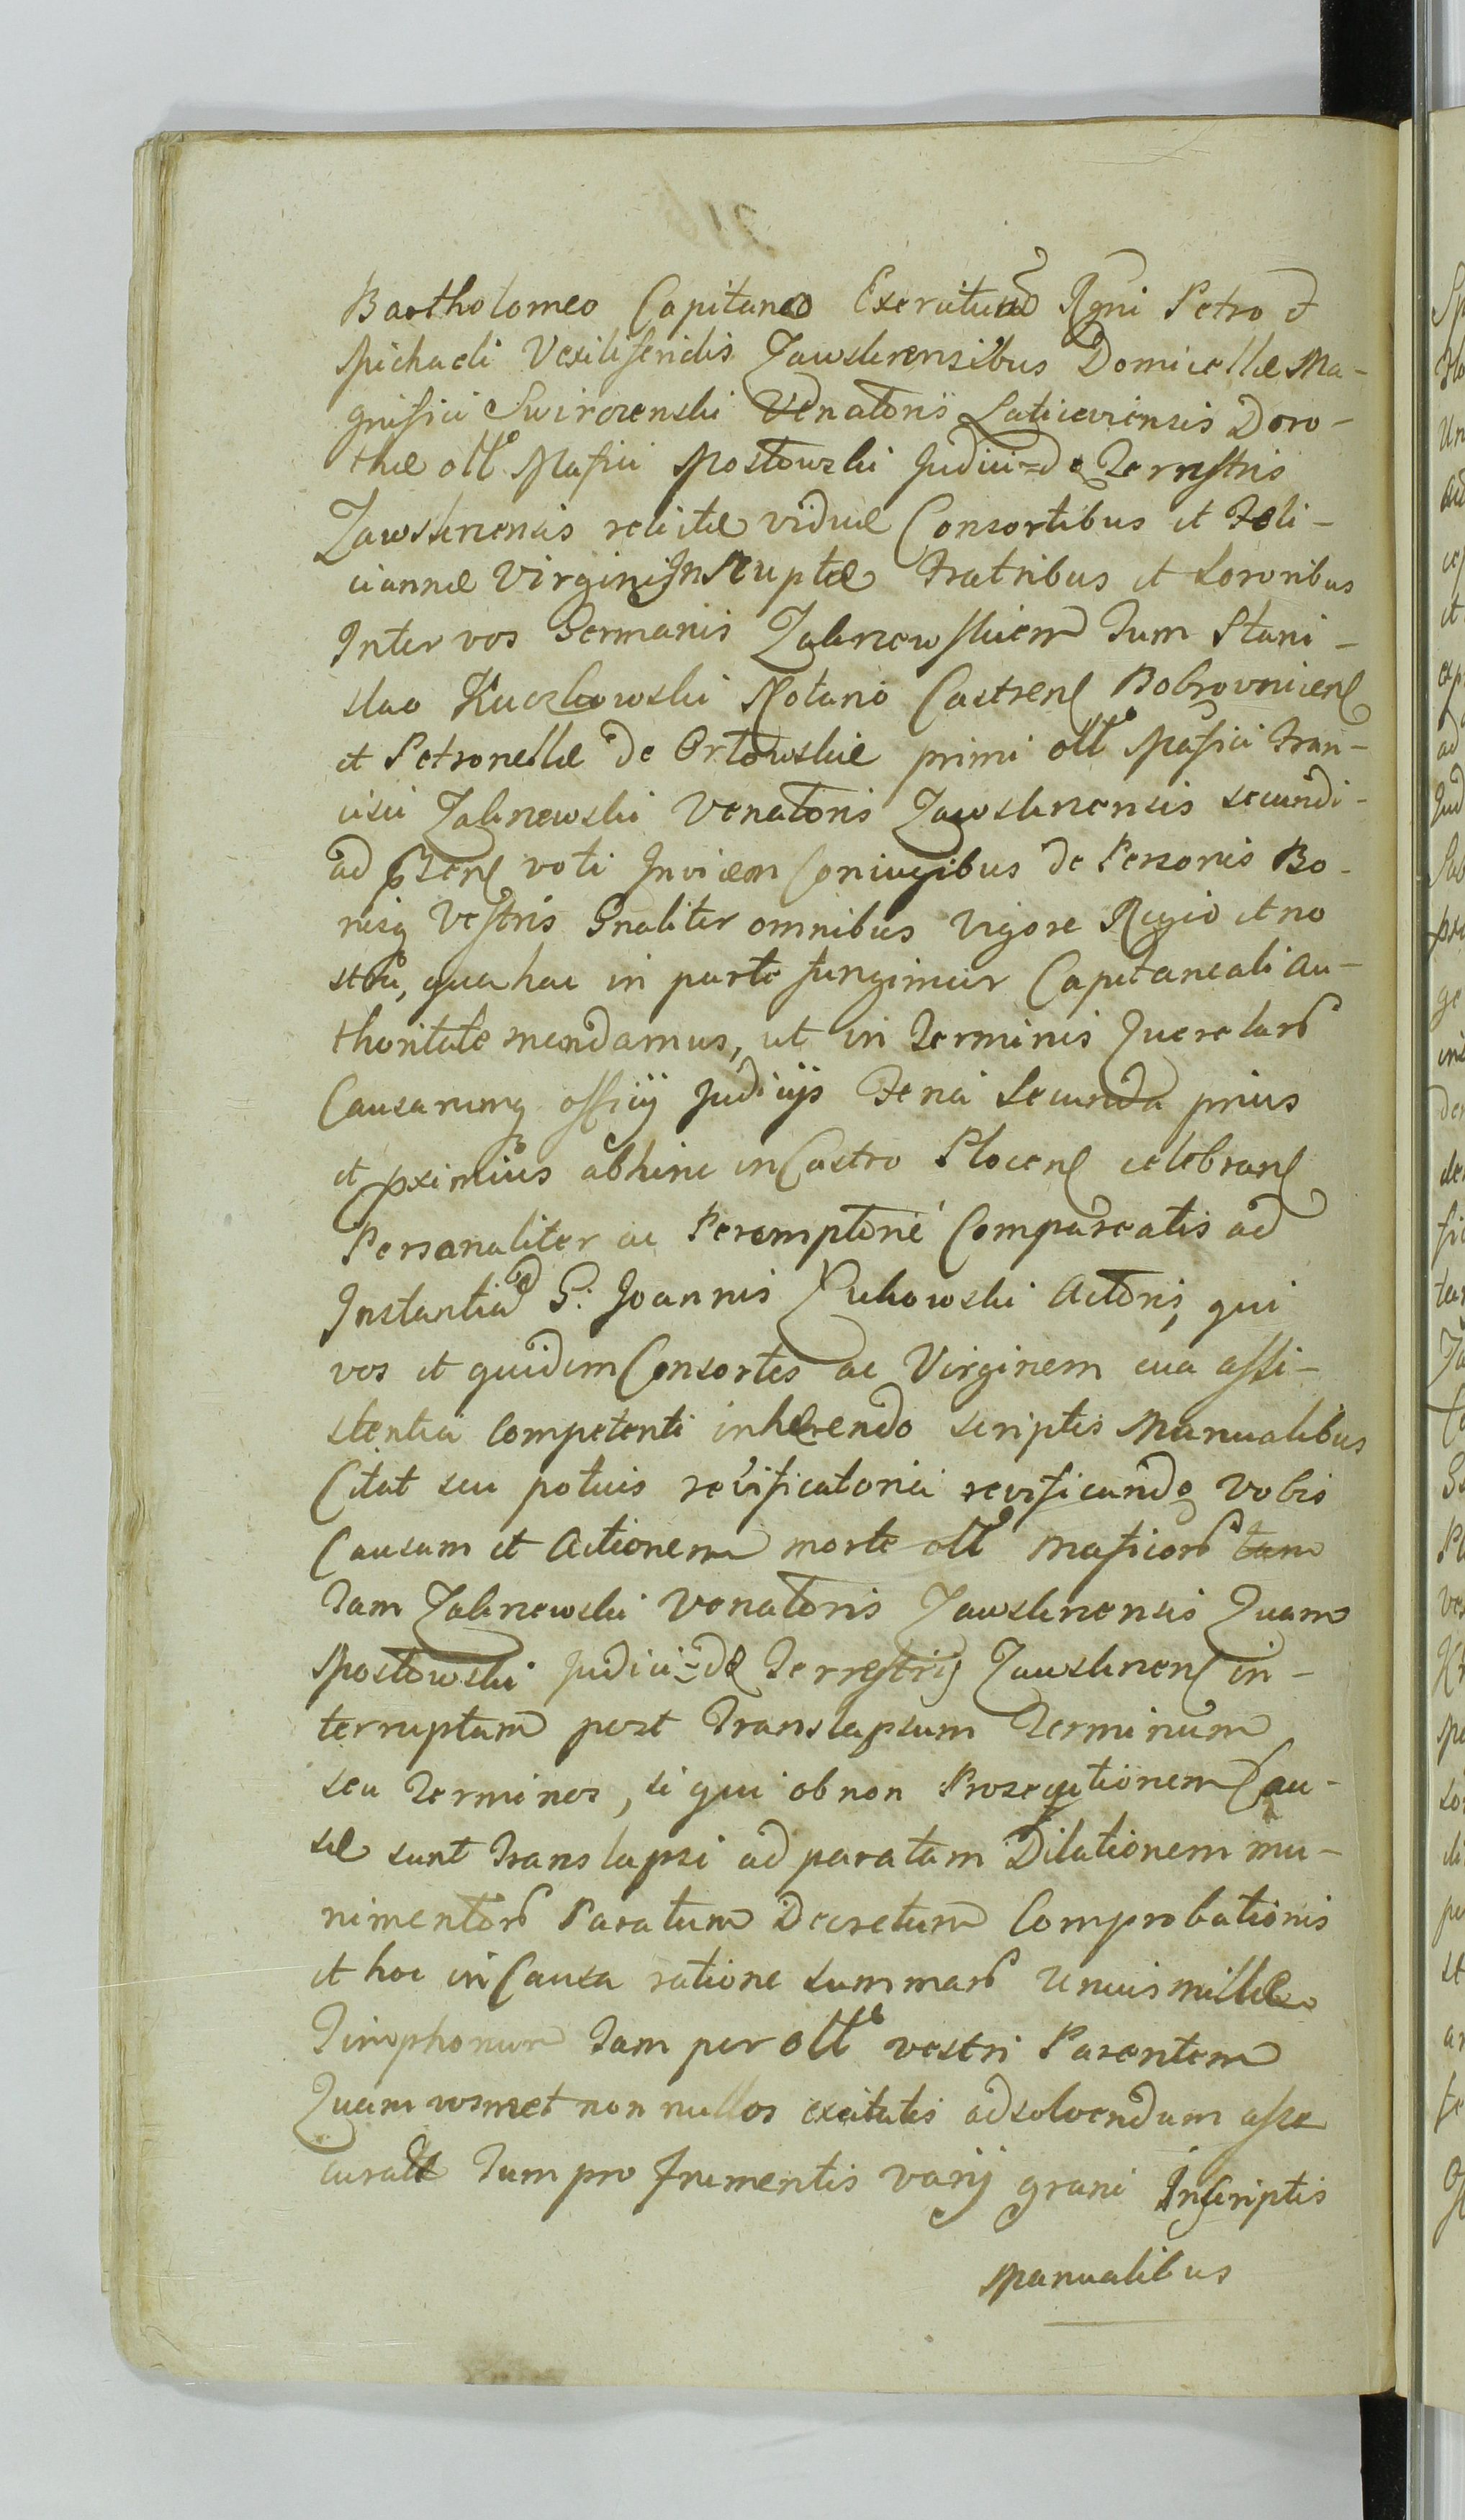 Bartholomeo Capitaneo Exercituum Rgni Petro et
Michaeli Vexiliferidis Zawskrensibus Domicellæ Ma-
gnifici Swirczenski Venatoris Laticeviensis Doro-
theæ oll Mafici Mostowski Judicis de Terrestris
Zawskrensis relictæ viduæ Consortibus et Feli-
ciannæ Virgini Innuptæ Fratribus et Sororibus
Inter vos Germanis Zakrzewskiem Tum Stani-
slao Kuczkowski Notario Castren Bobrovnicen
et Petronellæ de Orłowskie primi oll Mafici Fran-
cisci Zakrzewski Venatoris Zawskrzensis secundi
ad psen voti Invicem Coniugibus de Personis Bo-
nisq Vestris Gnaliter omnibus vigore Regio et no
stra, qua hac in parte fungimur Capitaneali Au-
thoritate mandamus, ut in Terminis Querelar
Causarumq officij Judicijs Feria Secunda prius
et pximius abhinc in Castro Plocen celebran
Personaliter ac Peremptorie Compareatis ad
Instantiam G. Joannis Zukowski Actoris, qui
vos et quidem Consortes ac Virginem cua assi-
stentia Competenti inhærendo scriptis Manualibus
Citat seu potius revificatoria revificando vobis
Causam et Actionem morte oll Maficor tam
Tam Zakrzewski Venatoris Zawskrzensis Quam
Mostowski Judicis de Terrestris Zawskrzen in-
terruptam post Translapsum Terminum
seu Terminos, si qui ob non Prosequtionem Cau-
sæ sunt Translapsi ad paratam Dilationem mu-
nimentor Paratum Decretum Comprobationis
et hoc in Causa ratione summar unius mille
Timphonum Tam per oll vestri Parentem
Quam vosmet non nullos excitatis ad solvendum asse
curatæ Tum pro frumentis varij grani Inscriptis
Manualibus